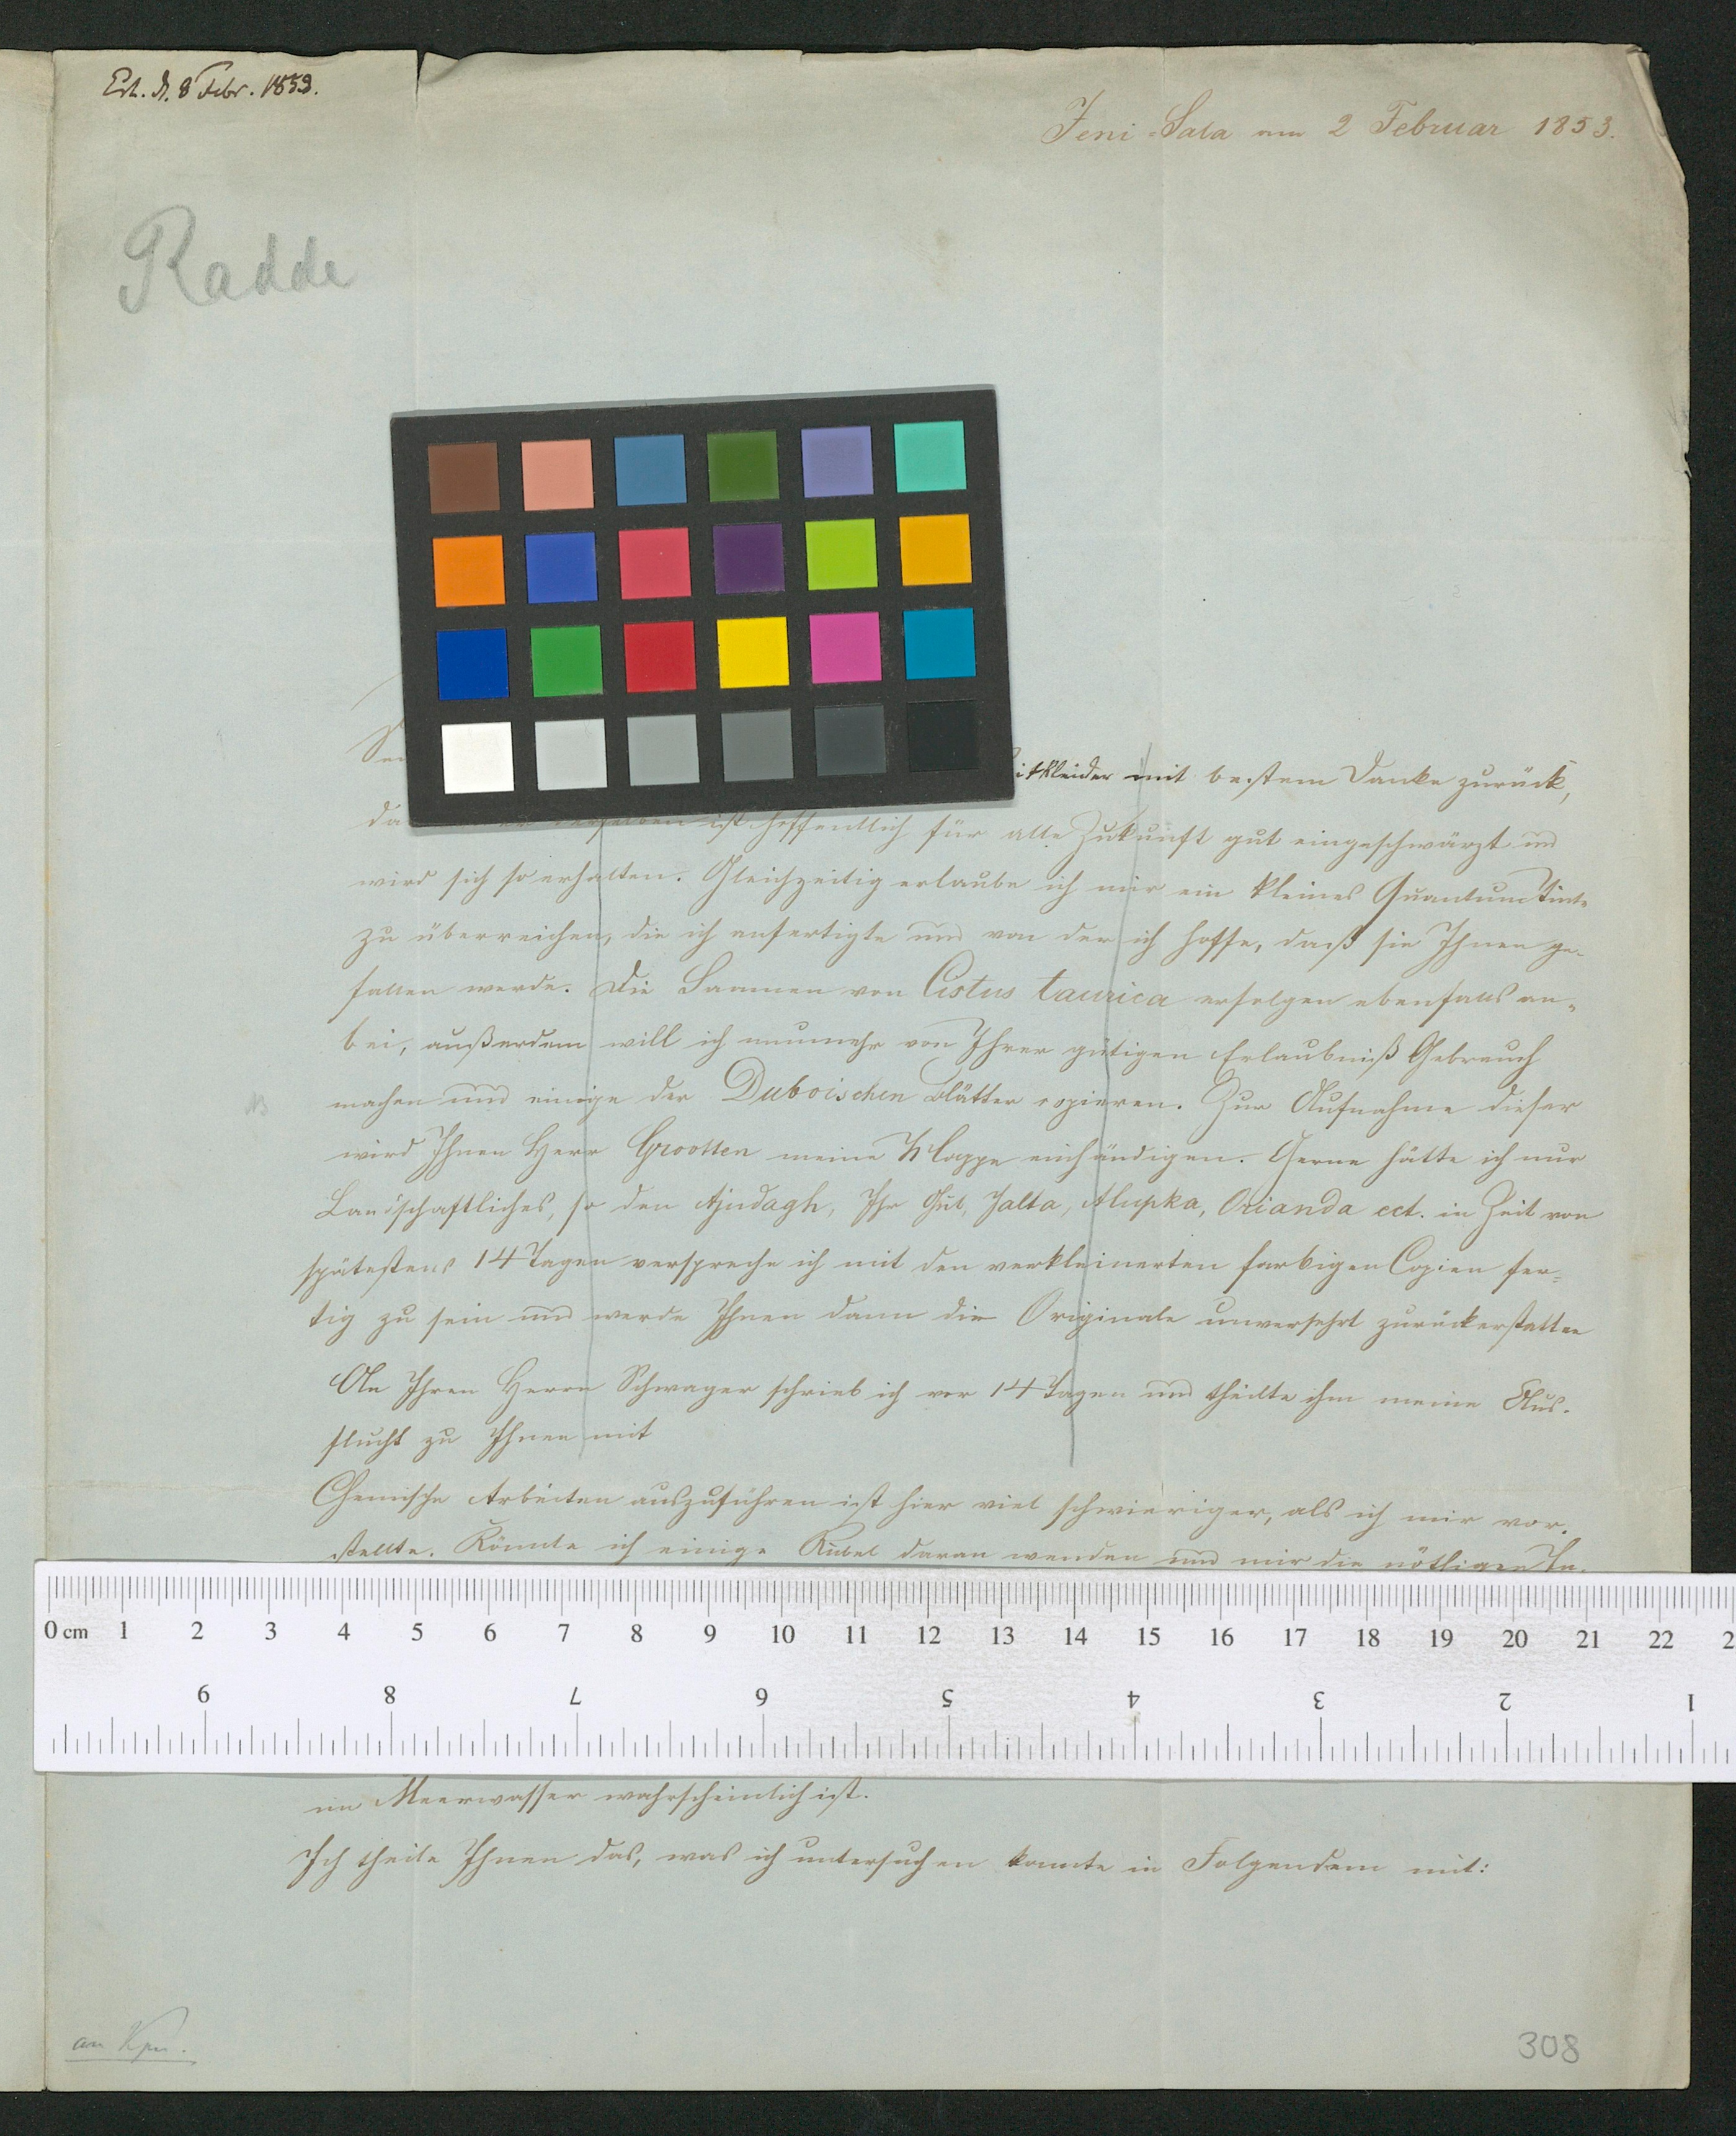 Erh. d. 8 Febr. 1853.
Jeni-Sala am 2 Februar 1853.
Radde
Reitkleider mit bestem Danke zurück,
derselben ist hoffentlich für alle Zukunft gut eingeschwärzt und
wird sich so erhalten. Gleichzeitig erlaube ich mir ein kleines Quantum Tinte
zu überreichen, die ich anfertigte und von der ich hoffe, daß sie Ihnen ge-
fallen werde. Die Saamen von Cistus taurica erfolgen ebenfalls an-
bei, außerdem will ich nunmehr von Ihrer gütigen Erlaubniß Gebrauch
machen und einige der Duboischen Blätter copieren. Zur Aufnahme dieser
wird Ihnen Herr Grooten meine Klappe einhändigen. Gerne hätte ich nur
Landschaftliches, so den Ajudagh, Ihr Gut, Jalta, Alupka, Orianda ect. in Zeit von
spätestens 14 Tagen verspreche ich mit den verkleinerten farbigen Copien fer-
tig zu sein und werde Ihnen dann die Originale unversehrt zurückerstatten
An Ihren Herrn Schwager schrieb ich vor 14 Tagen und theilte ihm meine Aus-
flucht zu Ihnen mit
Chemische Arbeiten auszuführen ist hier viel schwieriger, als ich mir vor-
stellte. Könnte ich einige Rubel daran wenden und mir die nöthigen In-
0 cm 1 2 3 4 5 6 7 8 9 10 11 12 13 14 15 16 17 18 19 20 21 22 2
9 8 7 6 5 4 3 2 1
im Meerwasser wahrscheinlich ist.
Ich theile Ihnen das, was ich untersuchen konnte in Folgendem mit:
an Kpn.
308